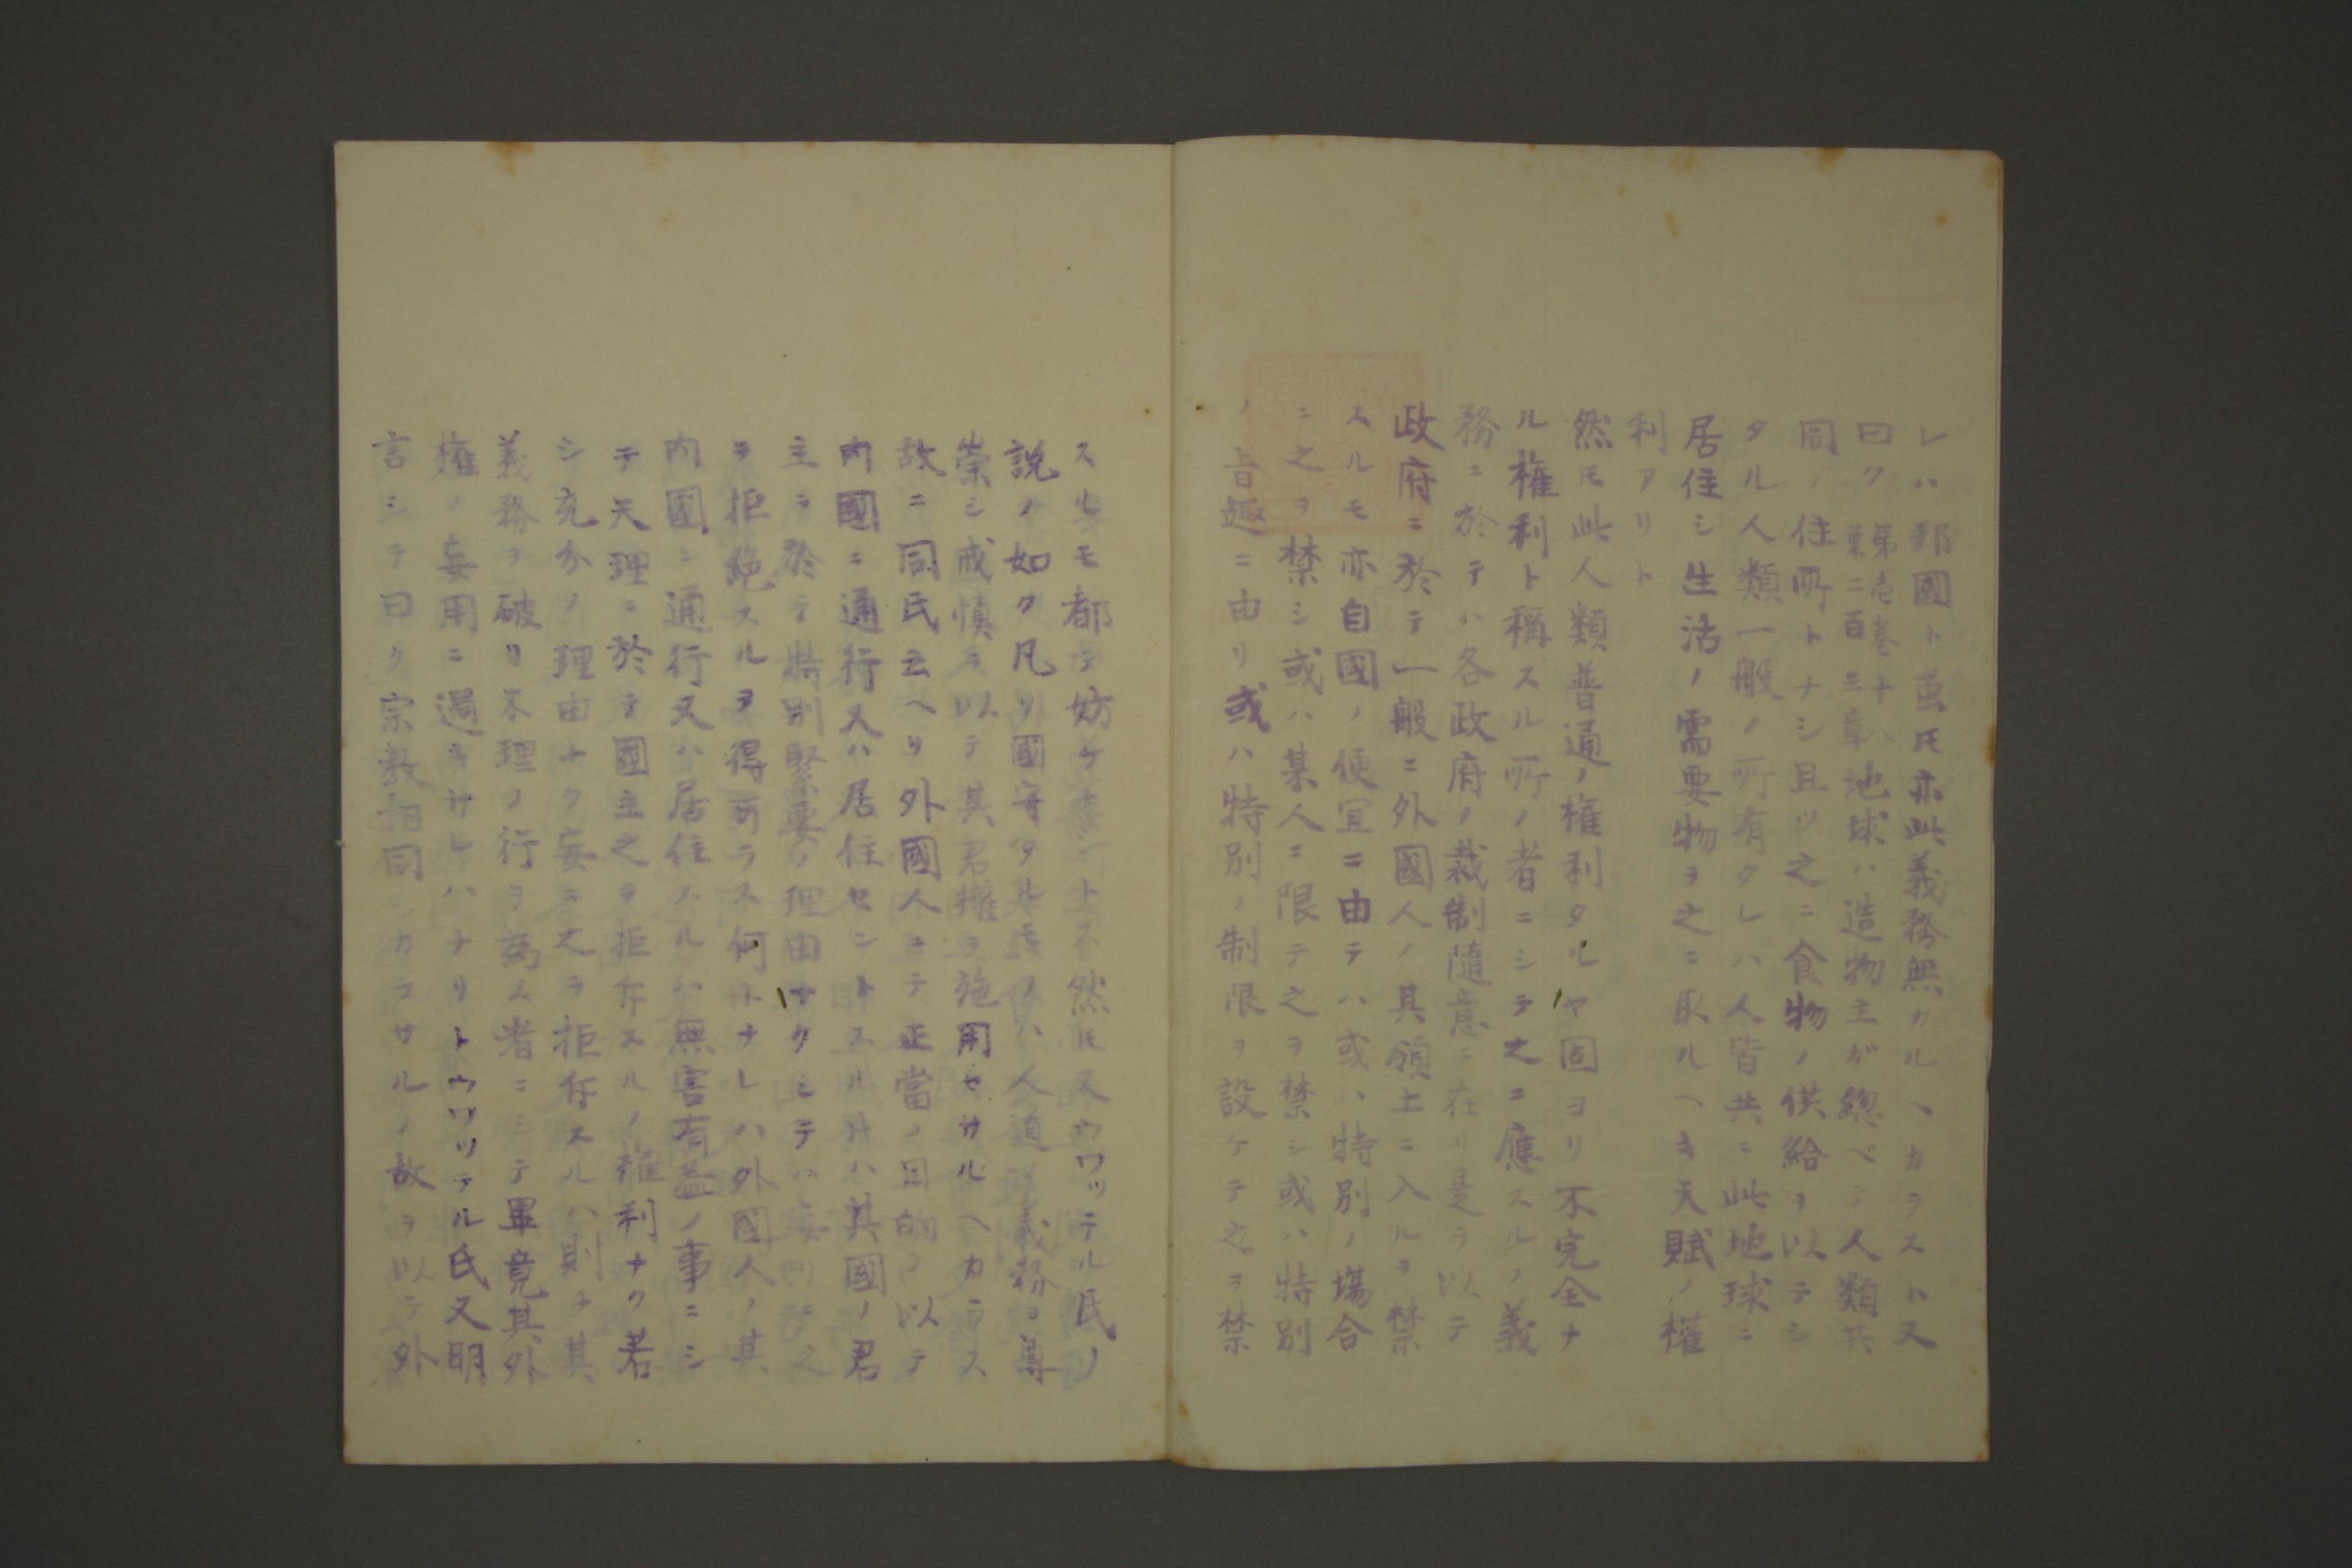 レハ邦國ト䖝𪜈亦此義務無カルヘカラスト又
曰ク第壱巻十八葉二百三章地球ハ造物主ガ總ベテ人類共
同ノ住所トナシ且ツ之ニ食物ノ供給ヲ以テシ
タル人類一般ノ所有タレハ人皆共ニ此地球ニ
居住シ生活ノ需要物ヲ之ニ取ルヘキ天賦ノ權
利アリト
然𪜈此人類普通ノ權利タルヤ固ヨリ不完全ナ
ル權利ト稱スル所ノ者ニシテ之ニ應スルノ義
務ニ於テハ各政府ノ裁制隨意ニ在リ是ヲ以テ
政府ニ於テ一般ニ外國人ノ其領土ニ入ルヲ禁
スルモ亦自國ノ便宜ニ由テハ或ハ特別ノ塲合
ニ之ヲ禁シ或ハ某人ニ限テ之ヲ禁シ或ハ特別
ノ旨趣ニ由リ或ハ特別ノ制限ヲ設ケテ之ヲ禁
スルモ都テ妨ケナシトス然𪜈又ウワッテル氏ノ
說ノ如ク凡ソ國守タル者ハ人道ノ義務ヲ尊
崇シ戒愼ヲ以テ其君權ヲ施用セサルヘカラス
故ニ同氏云ヘリ外國人ニテ正當ノ目的ヲ以テ
內國ニ通行又ハ居住セントスル時ハ其國ノ君
主ニ於テ特別緊要ノ理由ナクシテハ妄リニ之
ヲ拒絕スルヲ得可ラス何トナレハ外國人ノ其
內國ニ通行又ハ居住スルハ無害有益ノ事ニシ
テ天理ニ於テ國主之ヲ拒斥スルノ權利ナク若
シ充分ノ理由ナク妄ニ之ヲ拒斥スルハ則チ其
義務ヲ破リ不理ノ行ヲ為ス者ニシテ畢竟其外
權ノ妄用ニ過キサレハナリトウワッテル氏又明
言シテ曰ク宗教相同シカラサルノ故ヲ以テ外